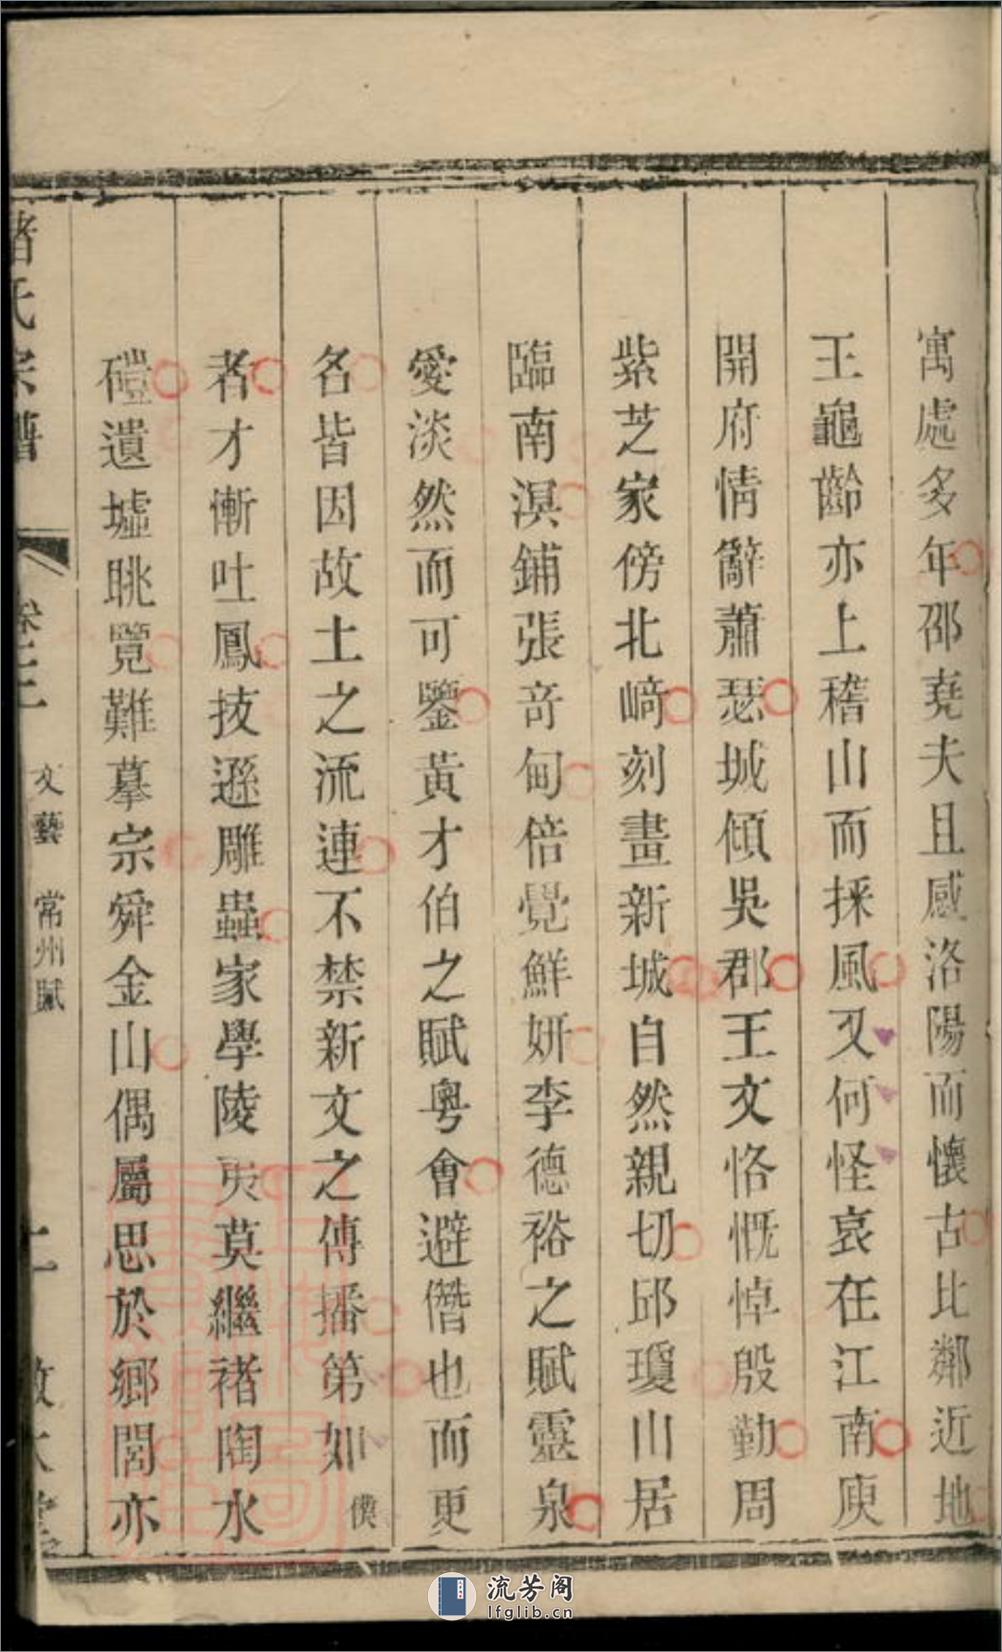 寓處多年邵堯夫且感洛陽而懷古比鄰近地
王龜齡亦上稽山而採風又何怪哀在江南庾
開府情辭蕭瑟城傾吳郡王文恪慨悼殷勤周
紫芝家傍北﨑刻畫新城自然親切邱瓊山居
臨南溟鋪張竒甸倍覺鮮妍李德裕之賦靈泉
愛淡然而可鑒黃才伯之賦粵會避僭也而更
名皆因故土之流連不禁新文之傳播第如僕
者才慚吐鳳技遜雕蟲家學陵夷莫繼褚陶水
磑遺墟眺覽難摹宗舜金山偶屬思於鄉閭亦
褚氏宗譜 卷之二 文藝 常州賦
流芳阁
lfglib.cn